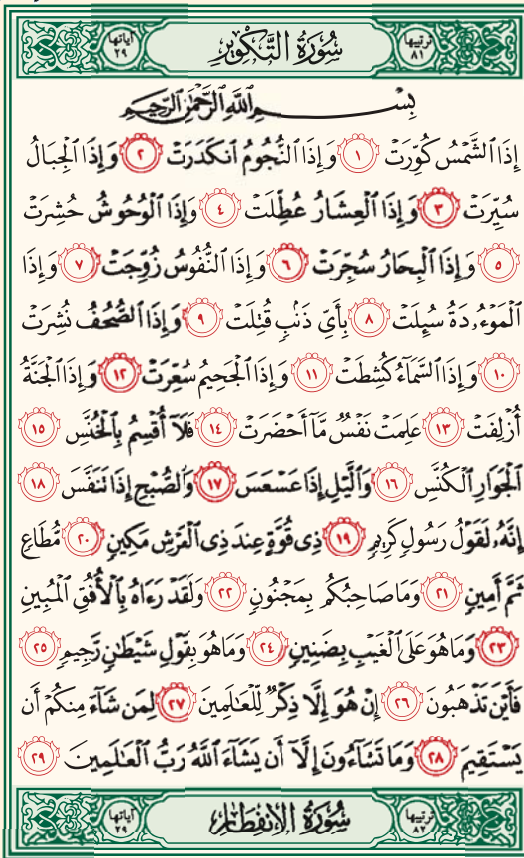 ترتيبها ٨١ سُورَةُ التَّكْوِيرِ آياتها ٢٩
بِسْمِ اللَّهِ الرَّحْمَٰنِ الرَّحِيمِ
إِذَا الشَّمْسُ كُوِّرَتْ ١ وَإِذَا النُّجُومُ انكَدَرَتْ ٢ وَإِذَا الْجِبَالُ
سُيِّرَتْ ٣ وَإِذَا الْعِشَارُ عُطِّلَتْ ٤ وَإِذَا الْوُحُوشُ حُشِرَتْ
٥ وَإِذَا الْبِحَارُ سُجِّرَتْ ٦ وَإِذَا النُّفُوسُ زُوِّجَتْ ٧ وَإِذَا
الْمَوْءُۥدَةُ سُئِلَتْ ٨ بِأَيِّ ذَنۢبٍ قُتِلَتْ ٩ وَإِذَا الصُّحُفُ نُشِرَتْ
١٠ وَإِذَا السَّمَآءُ كُشِطَتْ ١١ وَإِذَا الْجَحِيمُ سُعِّرَتْ ١٢ وَإِذَا الْجَنَّةُ
أُزْلِفَتْ ١٣ عَلِمَتْ نَفْسٌ مَّآ أَحْضَرَتْ ١٤ فَلَآ أُقْسِمُ بِالْخُنَّسِ ١٥
الْجَوَارِ الْكُنَّسِ ١٦ وَالَّيْلِ إِذَا عَسْعَسَ ١٧ وَالصُّبْحِ إِذَا تَنَفَّسَ ١٨
إِنَّهُۥ لَقَوْلُ رَسُولٍ كَرِيمٍ ١٩ ذِي قُوَّةٍ عِندَ ذِي الْعَرْشِ مَكِينٍ ٢٠ مُّطَاعٍ
ثَمَّ أَمِينٍ ٢١ وَمَا صَاحِبُكُم بِمَجْنُونٍ ٢٢ وَلَقَدْ رَءَاهُ بِالْأُفُقِ الْمُبِينِ
٢٣ وَمَا هُوَ عَلَى الْغَيْبِ بِضَنِينٍ ٢٤ وَمَا هُوَ بِقَوْلِ شَيْطَٰنٍ رَّجِيمٍ ٢٥
فَأَيْنَ تَذْهَبُونَ ٢٦ إِنْ هُوَ إِلَّا ذِكْرٌ لِّلْعَٰلَمِينَ ٢٧ لِمَن شَآءَ مِنكُمْ أَن
يَسْتَقِيمَ ٢٨ وَمَا تَشَآءُونَ إِلَّآ أَن يَشَآءَ اللَّهُ رَبُّ الْعَٰلَمِينَ ٢٩
ترتيبها ٨٢ سُورَةُ الْإِنفِطَارِ آياتها ٢٩